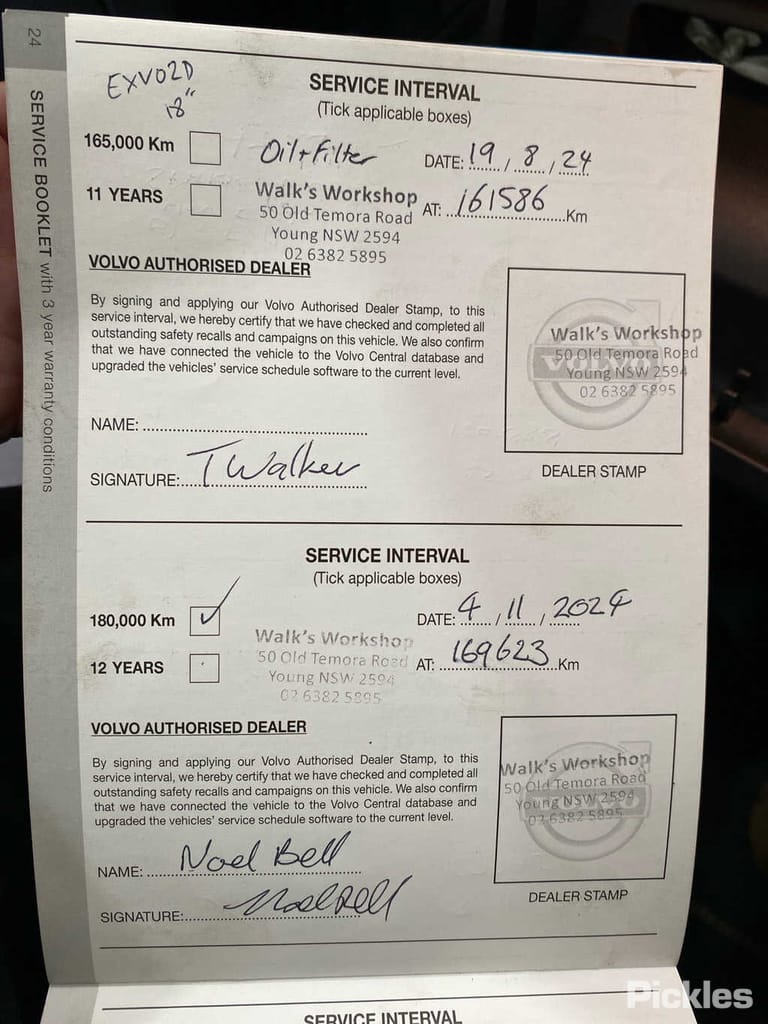 24
SERVICE BOOKLET with 3 year warranty conditions
EXVO2D
18"
SERVICE INTERVAL
(Tick applicable boxes)
165,000 Km
Oil + Filter
DATE: 19 / 8 / 24
11 YEARS
Walk's Workshop
50 Old Temora Road
Young NSW 2594
02 6382 5895
AT: 161586 Km
VOLVO AUTHORISED DEALER
By signing and applying our Volvo Authorised Dealer Stamp, to this
service interval, we hereby certify that we have checked and completed all
outstanding safety recalls and campaigns on this vehicle. We also confirm
that we have connected the vehicle to the Volvo Central database and
upgraded the vehicles' service schedule software to the current level.
VOLVO
Walk's Workshop
50 Old Temora Road
Young NSW 2594
02 6382 5895
NAME:
SIGNATURE: T Walker
DEALER STAMP
SERVICE INTERVAL
(Tick applicable boxes)
180,000 Km
DATE: 4 / 11 / 2024
12 YEARS
Walk's Workshop
50 Old Temora Road
Young NSW 2594
02 6382 5895
AT: 169623 Km
VOLVO AUTHORISED DEALER
By signing and applying our Volvo Authorised Dealer Stamp, to this
service interval, we hereby certify that we have checked and completed all
outstanding safety recalls and campaigns on this vehicle. We also confirm
that we have connected the vehicle to the Volvo Central database and
upgraded the vehicles' service schedule software to the current level.
VOLVO
Walk's Workshop
50 Old Temora Road
Young NSW 2594
02 6382 5895
NAME: Noel Bell
SIGNATURE: Noel Bell
DEALER STAMP
SERVICE INTERVAL
Pickles